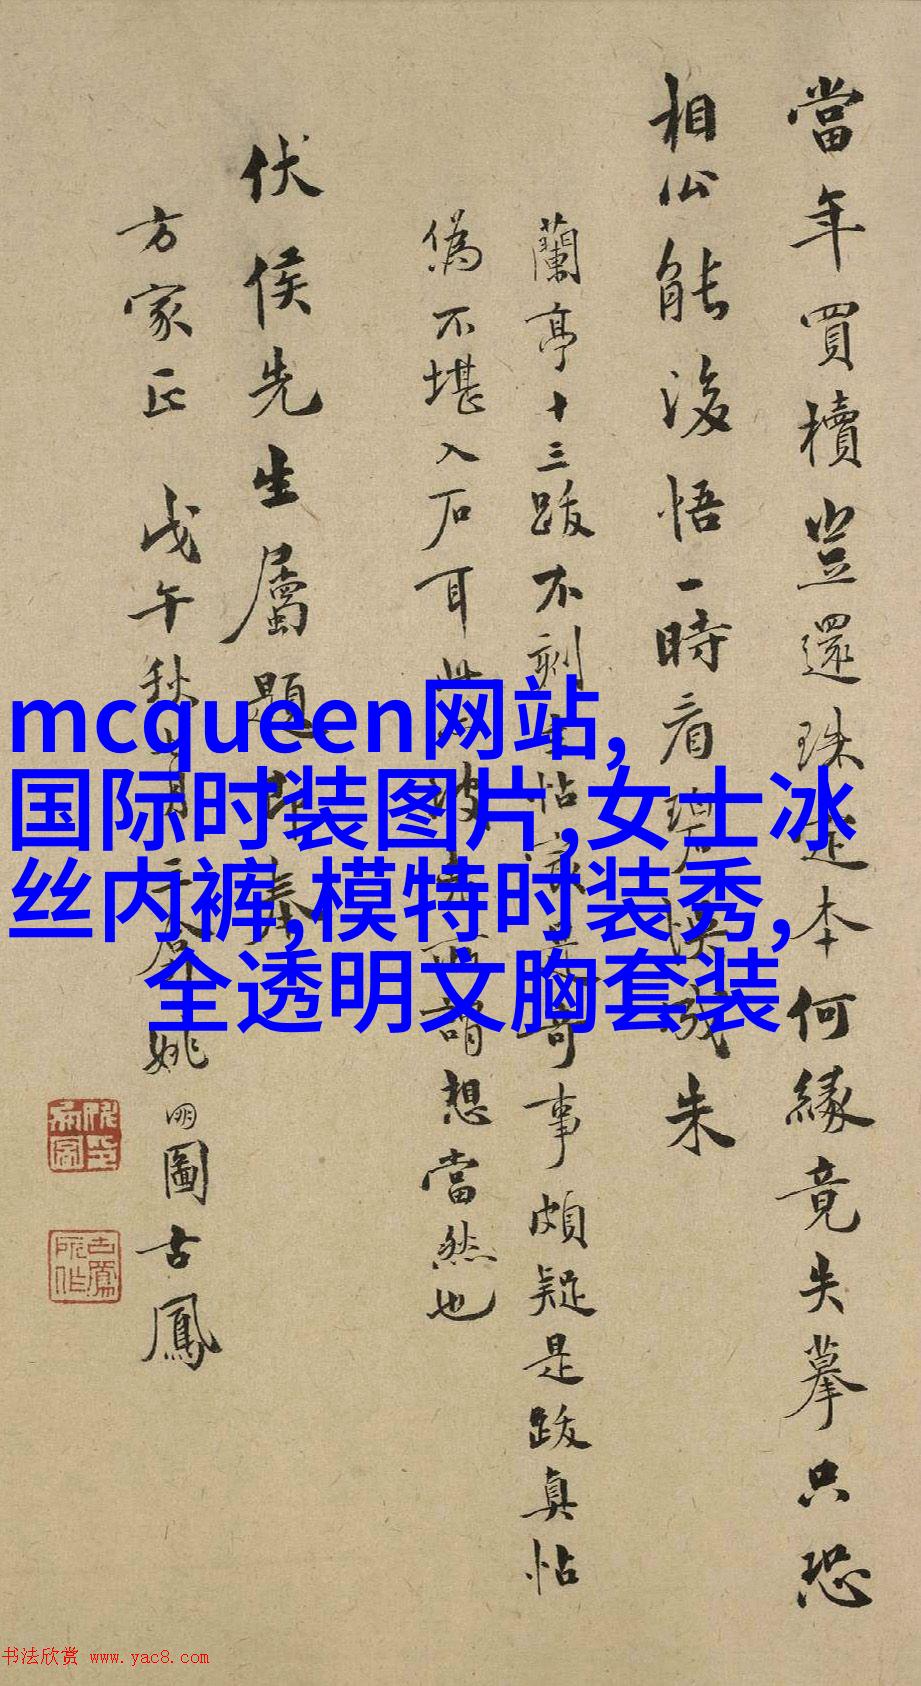 當年買櫝豈還珠定本何緣竟失摹只恐
相公能後悟一時看碧成朱
蘭亭十三跋不刻帖家奇事頗疑是跋真帖
偽不堪入石耳坡所謂想當然也
伏侯先生屬題奉
方家正 戊午秋月姚明圖古鳳
mcqueen网站,
国际时装图片,女士冰
丝内裤,模特时装秀,
全透明文胸套装
书法欣赏 www.yac8.com